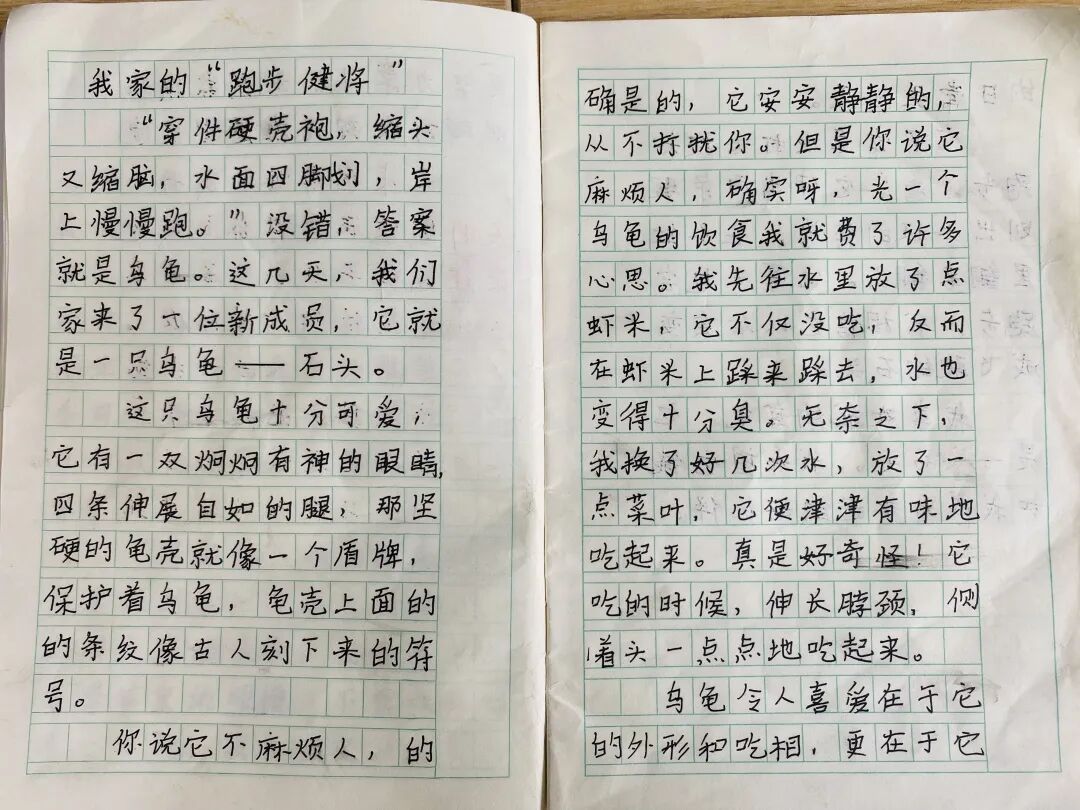 我家的“跑步健将”
“穿件硬壳袍，缩头
又缩脑，水面四脚划，岸
上慢慢跑。”没错，答案
就是乌龟。这几天，我们
家来了一位新成员，它就
是一只乌龟——石头。
这只乌龟十分可爱，
它有一双炯炯有神的眼睛，
四条伸展自如的腿，那坚
硬的龟壳就像一个盾牌，
保护着乌龟，龟壳上面的
的条纹像古人刻下来的符
号。
你说它不麻烦人，的
确是的，它安安静静的，
从不打扰你。但是你说它
麻烦人，确实呀，光一个
乌龟的饮食我就费了许多
心思。我先往水里放了点
虾米，它不仅没吃，反而
在虾米上踩来踩去，水也
变得十分臭。无奈之下，
我换了好几次水，放了一
点菜叶，它便津津有味地
吃起来。真是好奇怪！它
吃的时候，伸长脖颈，侧
着头一点点地吃起来。
乌龟令人喜爱在于它
的外形和吃相，更在于它